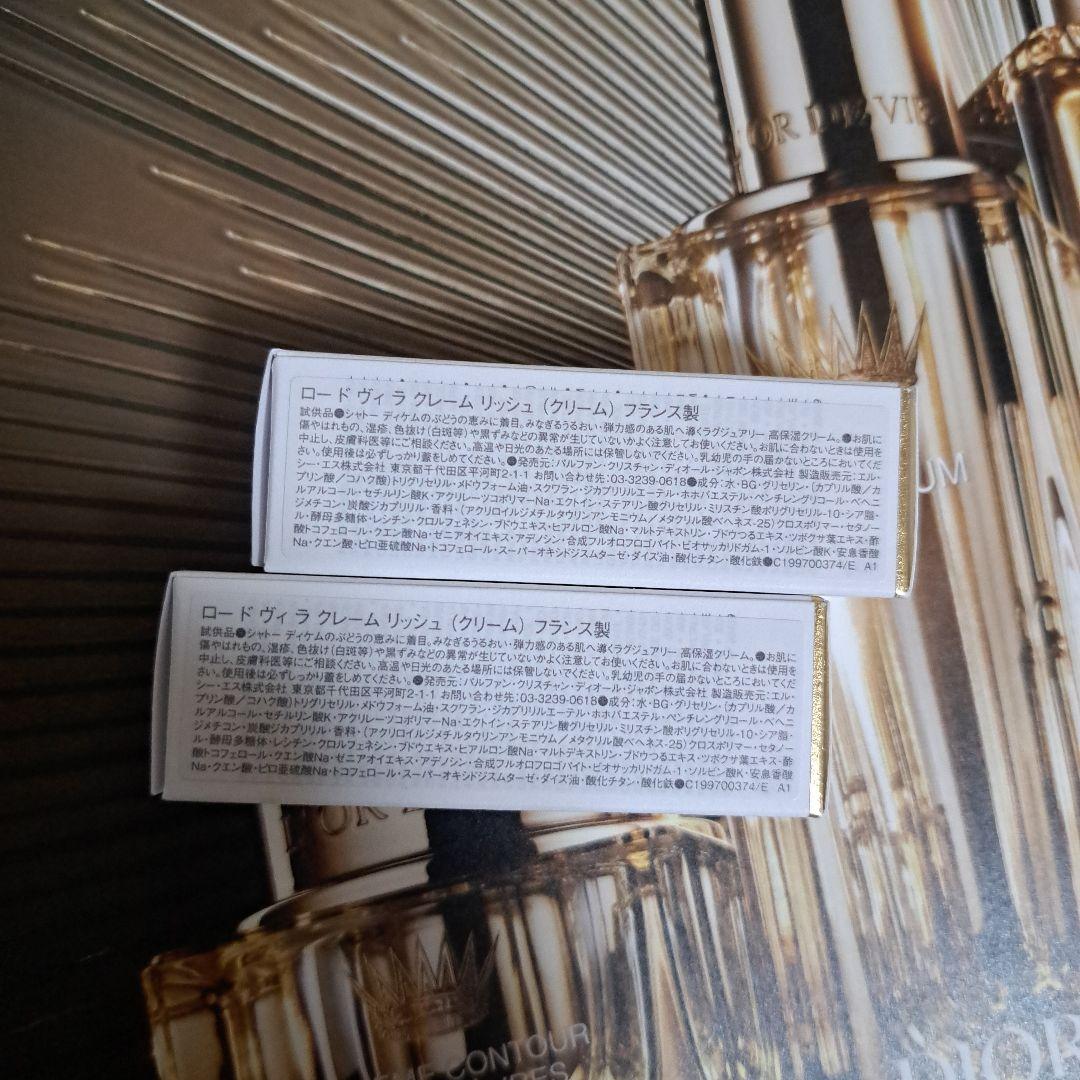 L'OR DE VIE
ロード ヴィ ラ クレーム リッシュ（クリーム）フランス製
試供品●シャトー ディケムのぶどうの恵みに着目。みなぎるうるおい・弾力感のある肌へ導くラグジュアリー 高保湿クリーム。●お肌に
傷やはれもの、湿疹、色抜け(白斑等)や黒ずみなどの異常が生じていないかよく注意してお使いください。お肌に合わないときは使用を
中止し、皮膚科医等にご相談ください。高温や日光のあたる場所には保管しないでください。乳幼児の手の届かないところにおいてくだ
さい。使用後は必ずしっかり蓋をしめてください。●発売元：パルファン・クリスチャン・ディオール・ジャポン株式会社 製造販売元：エル・
シー・エス株式会社 東京都千代田区平河町2-1-1 お問い合わせ先：03-3239-0618●成分：水・BG・グリセリン・(カプリル酸／カ
プリン酸／コハク酸)トリグリセリル・メドウフォーム油・スクワラン・ジカプリリルエーテル・ホホバエステル・ペンチレングリコール・ベヘニ
ルアルコール・セチルリン酸K・アクリレーツコポリマーNa・エクトイン・ステアリン酸グリセリル・ミリスチン酸ポリグリセリル-10・シア脂・
ジメチコン・炭酸ジカプリリル・香料・(アクリロイルジメチルタウリンアンモニウム／メタクリル酸ベヘネス-25)クロスポリマー・セタノー
ル・酵母多糖体・レシチン・クロルフェネシン・ブドウエキス・ヒアルロン酸Na・マルトデキストリン・ブドウつるエキス・ツボクサ葉エキス・酢
酸トコフェロール・クエン酸Na・ゼニアオイエキス・アデノシン・合成フルオロフロゴパイト・ビオサッカリドガム-1・ソルビン酸K・安息香酸
Na・クエン酸・ピロ亜硫酸Na・トコフェロール・スーパーオキシドジスムターゼ・ダイズ油・酸化チタン・酸化鉄●C199700374/E A1
ロード ヴィ ラ クレーム リッシュ（クリーム）フランス製
試供品●シャトー ディケムのぶどうの恵みに着目。みなぎるうるおい・弾力感のある肌へ導くラグジュアリー 高保湿クリーム。●お肌に
傷やはれもの、湿疹、色抜け(白斑等)や黒ずみなどの異常が生じていないかよく注意してお使いください。お肌に合わないときは使用を
中止し、皮膚科医等にご相談ください。高温や日光のあたる場所には保管しないでください。乳幼児の手の届かないところにおいてくだ
さい。使用後は必ずしっかり蓋をしめてください。●発売元：パルファン・クリスチャン・ディオール・ジャポン株式会社 製造販売元：エル・
シー・エス株式会社 東京都千代田区平河町2-1-1 お問い合わせ先：03-3239-0618●成分：水・BG・グリセリン・(カプリル酸／カ
プリン酸／コハク酸)トリグリセリル・メドウフォーム油・スクワラン・ジカプリリルエーテル・ホホバエステル・ペンチレングリコール・ベヘニ
ルアルコール・セチルリン酸K・アクリレーツコポリマーNa・エクトイン・ステアリン酸グリセリル・ミリスチン酸ポリグリセリル-10・シア脂・
ジメチコン・炭酸ジカプリリル・香料・(アクリロイルジメチルタウリンアンモニウム／メタクリル酸ベヘネス-25)クロスポリマー・セタノー
ル・酵母多糖体・レシチン・クロルフェネシン・ブドウエキス・ヒアルロン酸Na・マルトデキストリン・ブドウつるエキス・ツボクサ葉エキス・酢
酸トコフェロール・クエン酸Na・ゼニアオイエキス・アデノシン・合成フルオロフロゴパイト・ビオサッカリドガム-1・ソルビン酸K・安息香酸
Na・クエン酸・ピロ亜硫酸Na・トコフェロール・スーパーオキシドジスムターゼ・ダイズ油・酸化チタン・酸化鉄●C199700374/E A1
CONTOUR
DIOR